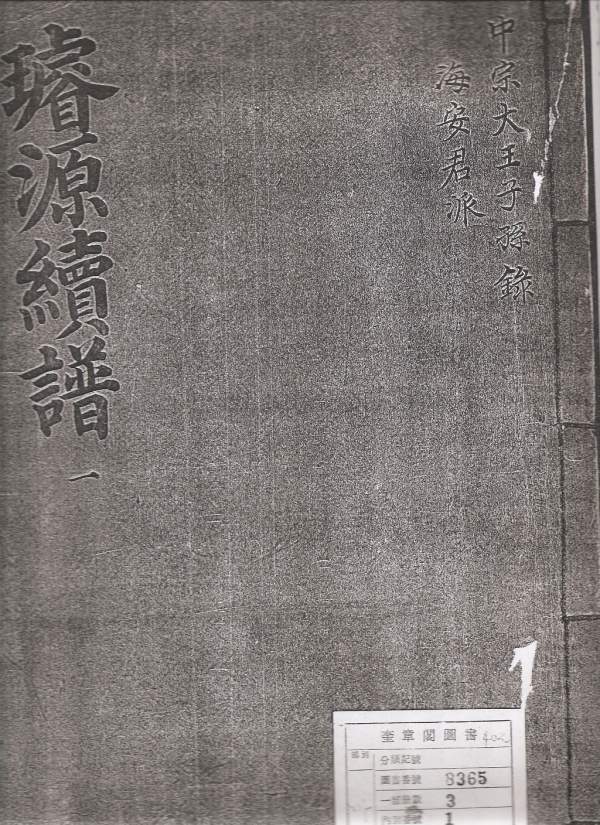 中宗大王子孫錄
海安君派
璿源續譜 一
奎章閣圖書
部別
分類記號
圖書番號 8365
一部冊數 3
內別番號 1